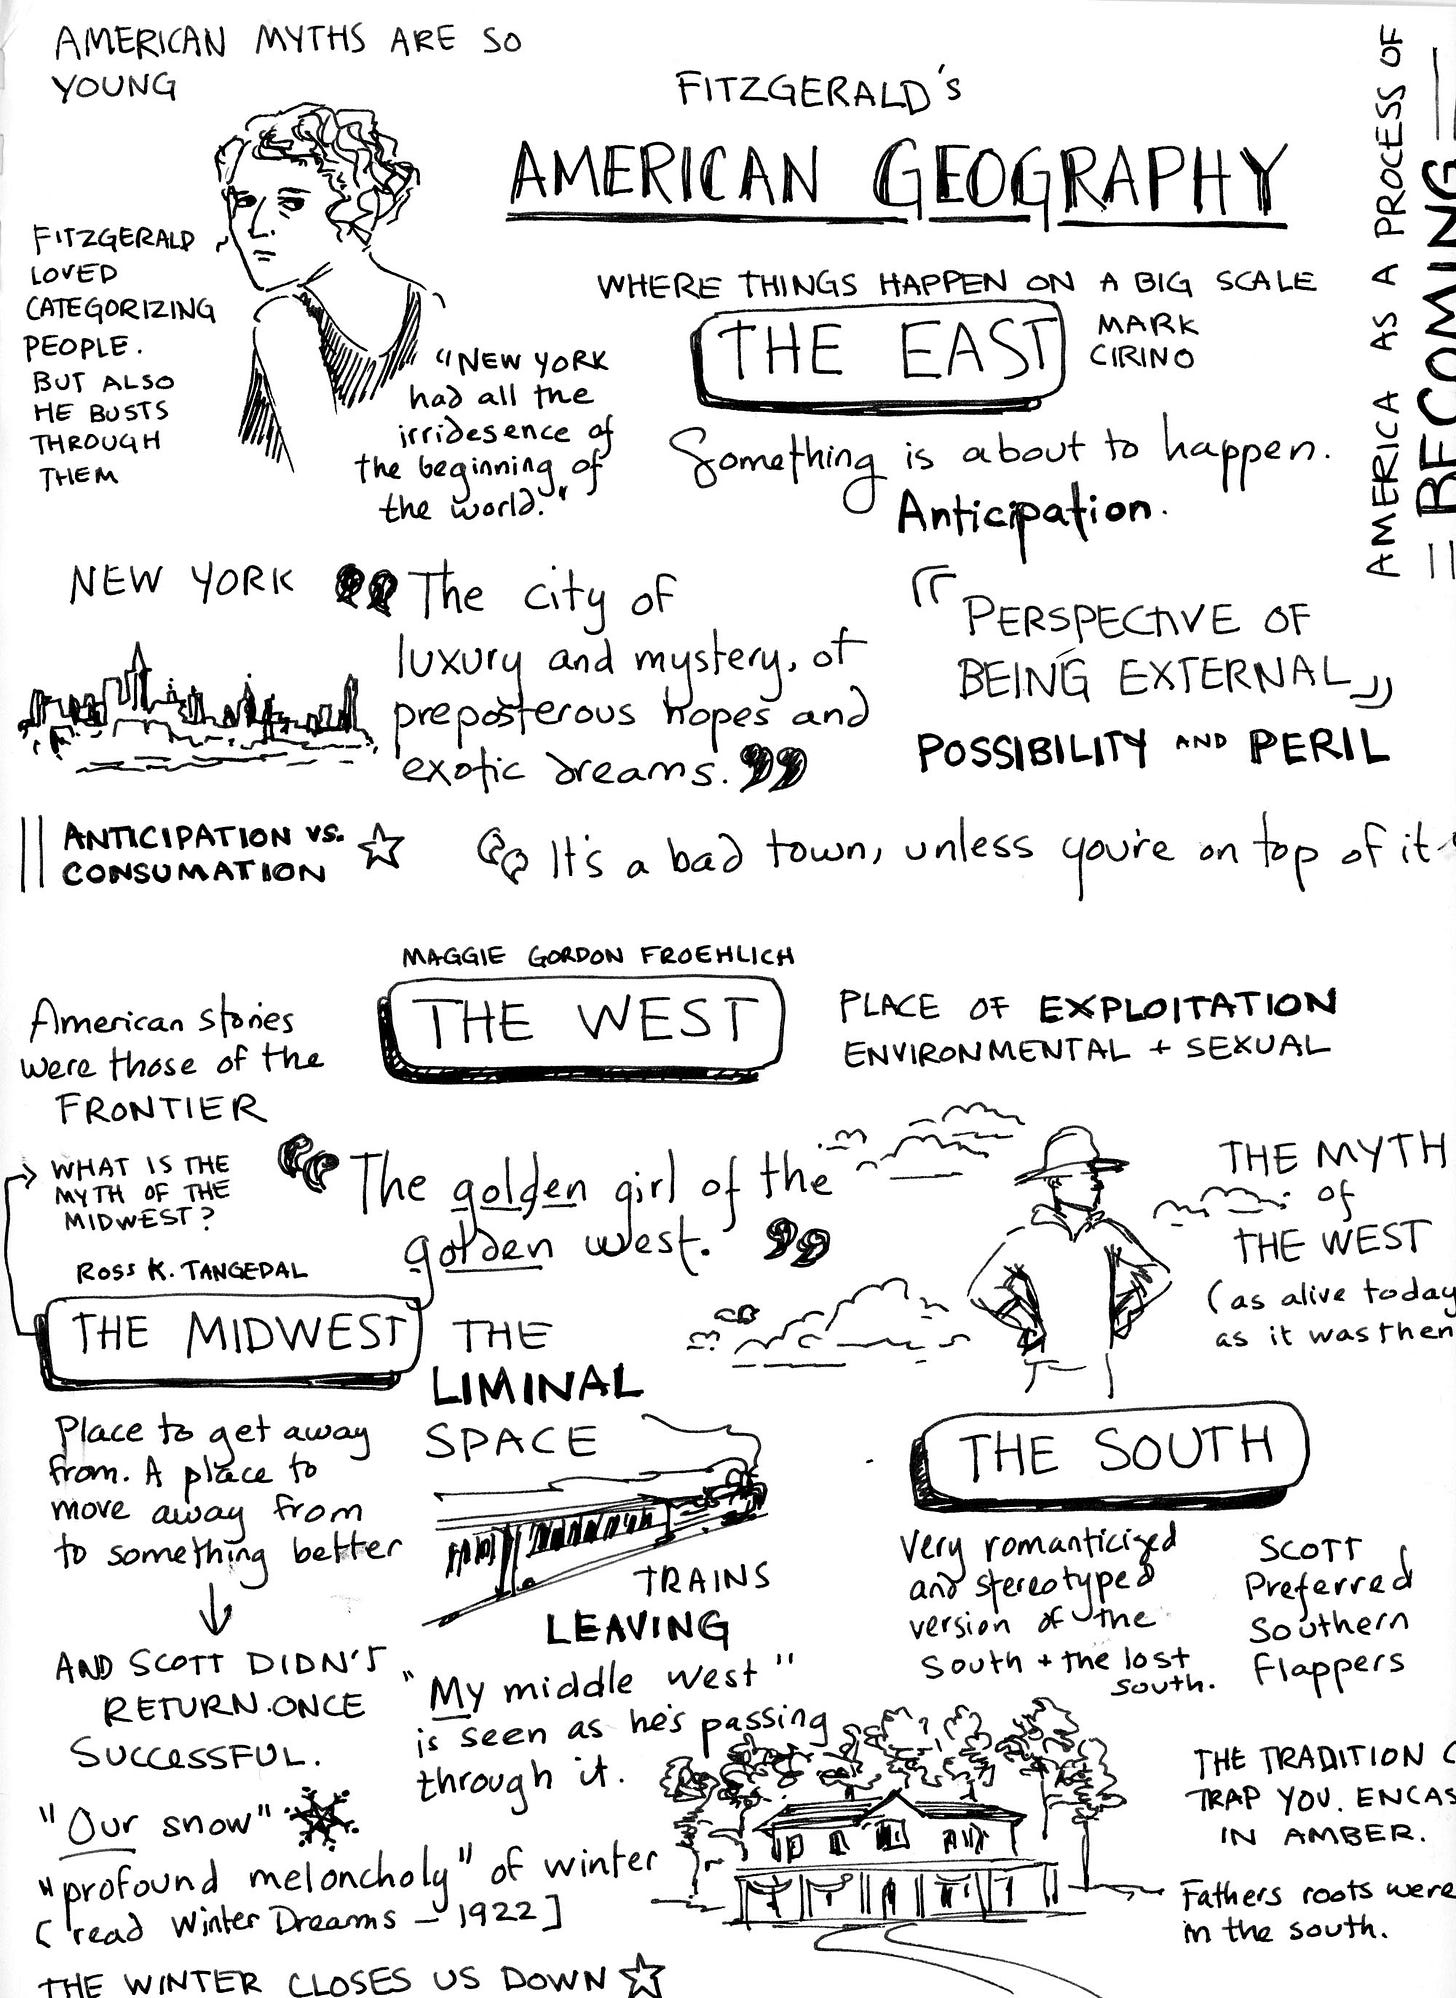 AMERICAN MYTHS ARE SO
YOUNG
FITZGERALD
LOVED
CATEGORIZING
PEOPLE.
BUT ALSO
HE BUSTS
THROUGH
THEM
FITZGERALD'S
AMERICAN GEOGRAPHY
AMERICA AS A PROCESS OF
BECOMING
WHERE THINGS HAPPEN ON A BIG SCALE
THE EAST
MARK
CIRINO
"NEW YORK
had all the
irridesence of
the beginning of
the world."
Something is about to happen.
Anticipation.
NEW YORK
"The city of
luxury and mystery, of
preposterous hopes and
exotic dreams."
PERSPECTIVE OF
BEING EXTERNAL
POSSIBILITY AND PERIL
ANTICIPATION VS.
CONSUMATION
"It's a bad town, unless you're on top of it.
MAGGIE GORDON FROEHLICH
THE WEST
PLACE OF EXPLOITATION
ENVIRONMENTAL + SEXUAL
American stories
were those of the
FRONTIER
"The golden girl of the
golden west."
THE MYTH
of
THE WEST
(as alive today
as it was then
WHAT IS THE
MYTH OF THE
MIDWEST?
ROSS K. TANGEDAL
THE MIDWEST
THE
LIMINAL
SPACE
Place to get away
from. A place to
move away from
to something better
AND SCOTT DIDN'T
RETURN.ONCE
SUCCESSFUL.
TRAINS
LEAVING
"My middle west"
is seen as he's passing
through it.
"Our snow"
"profound meloncholy" of winter
(read Winter Dreams - 1922]
THE WINTER CLOSES US DOWN
THE SOUTH
Very romanticized
and stereotyped
version of the
South + the lost
south.
SCOTT
Preferred
Southern
Flappers
THE TRADITION
TRAP YOU. ENCAS
IN AMBER.
Fathers roots were
in the south.